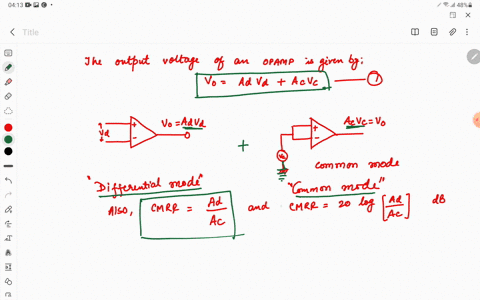 04:13
48%
Title
The output voltage of an OPAMP is given by:
Vo = Ad Vd + Ac Vc — ①
Vd + - Vo = AdVd
+
+ - AcVc = Vo
common mode
"Differential mode" "Common mode"
Also, CMRR = Ad/Ac and CMRR = 20 log [Ad/Ac] dB